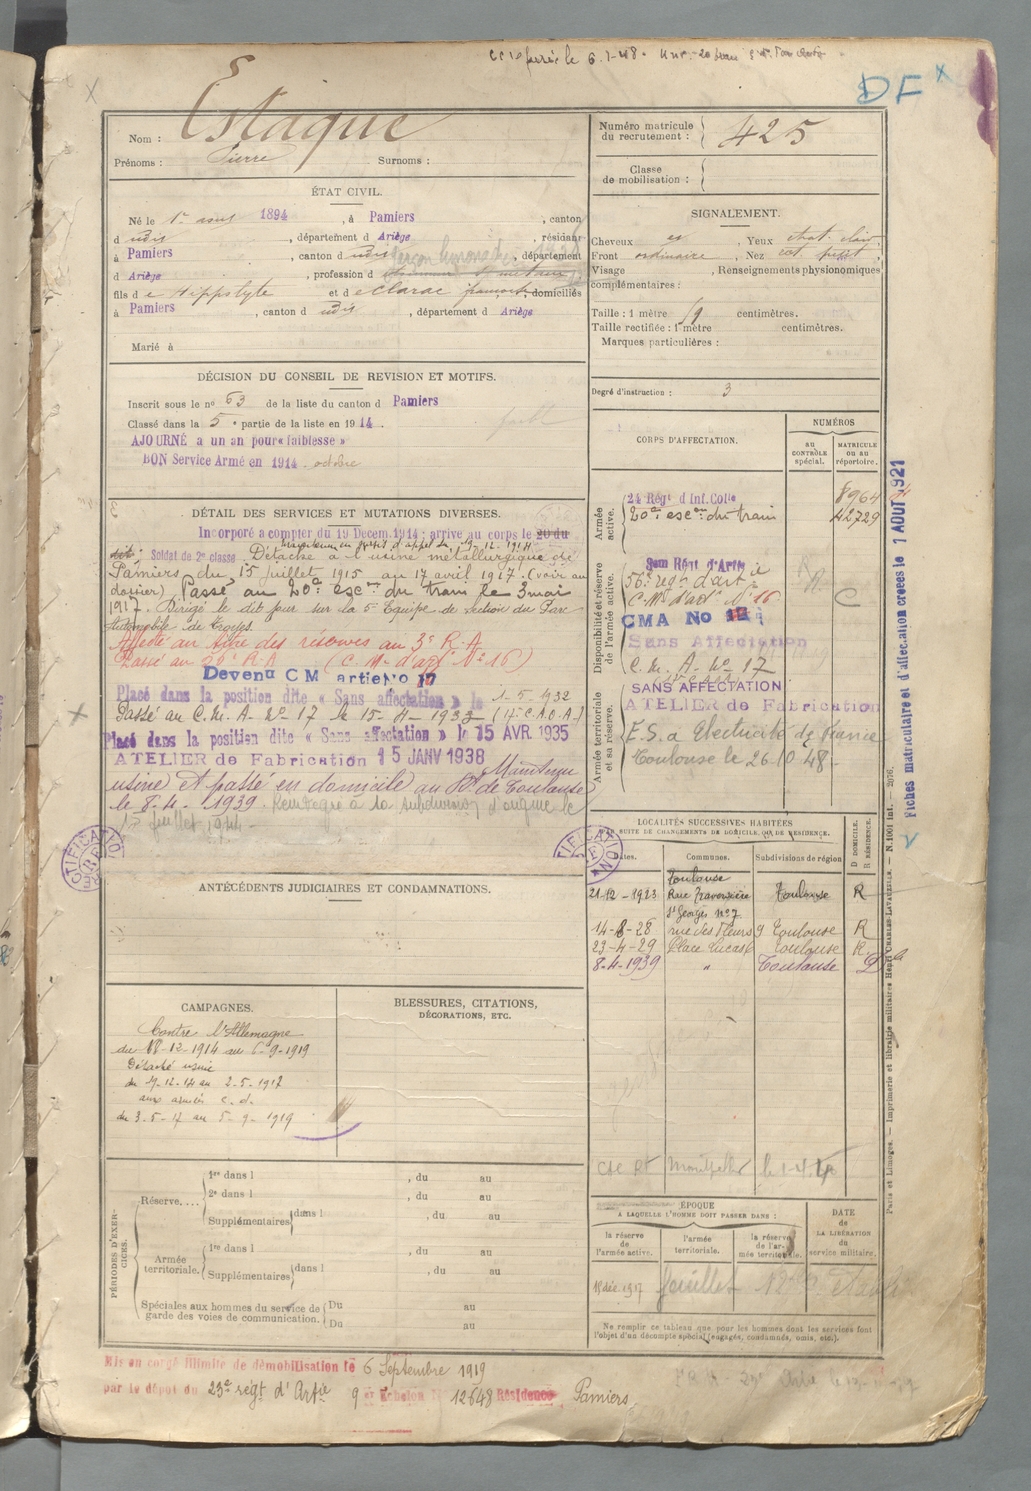 DF
Nom : Estaque
Prénoms : Pierre Surnoms :
Numéro matricule du recrutement : 425
Classe de mobilisation :
ÉTAT CIVIL.
Né le 1er 1894, à Pamiers, canton
d udit, département d Ariège, résidant
à Pamiers, canton d udit, département
d Ariège, profession d
fils de Hippolyte et de Clarac françoise, domiciliés
à Pamiers, canton d udit, département d Ariège
Marié à
SIGNALEMENT.
Cheveux, Yeux chat. clair
Front ordinaire, Nez
Visage, Renseignements physionomiques
complémentaires :
Taille : 1 mètre centimètres.
Taille rectifiée : 1 mètre centimètres.
Marques particulières :
Degré d'instruction : 3
DÉCISION DU CONSEIL DE REVISION ET MOTIFS.
Inscrit sous le no 63 de la liste du canton d Pamiers
Classé dans la 5e partie de la liste en 1914.
AJOURNÉ a un an pour « faiblesse »
BON Service Armé en 1914 octobre
DÉTAIL DES SERVICES ET MUTATIONS DIVERSES.
Incorporé a compter du 19 Decem. 1914 : arrivé au corps le 20 du
dit : Soldat de 2e classe Détaché à l'usine métallurgique de
Pamiers du 15 juillet 1915 au 17 avril 1917. (voir au
dossier) Passé au 20e escon du train le 3 mai
1917. Dirigé le dit jour sur la 5e Equipe de section du Parc
Automobile de Troyes.
Affecté au titre des réserves au 3e R.A.
Passé au R.A. (C. Mre d'art No 16)
Devenu C M artie No 17
Placé dans la position dite « Sans affectation » le 1-5-1932
Passé au C. M. A. No 17 le 15-4-1933 (14e C.A.O.A.)
Placé dans la position dite « Sans affectation » le 15 AVR. 1935
ATELIER de Fabrication 15 JANV 1938
Maintenu
usine et passé en domicile au Bu de Toulouse
le 8-4-1939. Reintégré à la subdivision d'origine le
15 juillet 1944
CORPS D'AFFECTATION.
NUMÉROS
au CONTRÔLE spécial.
MATRICULE OU AU répertoire.
Armée active.
24 Régt d'Inf. Colle 8964
20e escon du train 42729
Disponibilité et réserve de l'armée active.
56e régt d'artie
C. Mre d'art No 16 C
CMA No
Sans Affectation
C. M. A. No 17
Armée territoriale et sa réserve.
SANS AFFECTATION
ATELIER de Fabrication
E.S. a Electricité de France
Toulouse le 26-10-48
Fiches matriculaire et d'affectation créées le 1 AOUT 1921
ANTÉCÉDENTS JUDICIAIRES ET CONDAMNATIONS.
LOCALITÉS SUCCESSIVES HABITÉES
PAR SUITE DE CHANGEMENTS DE DOMICILE OU DE RESIDENCE.
Dates. Communes. Subdivisions de région D DOMICILE. R RÉSIDENCE.
21-12-1923 Toulouse Rue Traversière St Georges no 7 Toulouse R
14-8-28 rue des Fleurs 9 Toulouse R
23-4-29 Place Lucas 6 Toulouse R
8-4-1939 " Toulouse D
Montpellier
CAMPAGNES.
Contre l'Allemagne
du 18-12-1914 au 6-9-1919
Détaché usine
du 19-12-14 au 2-5-1917
aux armées c. d.
du 3-5-17 au 5-9-1919
BLESSURES, CITATIONS,
DÉCORATIONS, ETC.
PÉRIODES D'EXERCICES.
Réserve.... 1re dans l, du au
2e dans l, du au
Supplémentaires dans l, du au
Armée territoriale. 1re dans l, du au
Supplémentaires dans l, du au
Spéciales aux hommes du service de garde des voies de communication. Du au
Du au
ÉPOQUE
A LAQUELLE L'HOMME DOIT PASSER DANS :
la réserve de l'armée active. l'armée territoriale. la réserve de l'armée territoriale.
DATE de LA LIBÉRATION du service militaire.
Ne remplir ce tableau que pour les hommes dont les services font
l'objet d'un décompte spécial (engagés, condamnés, omis, etc.).
Paris et Limoges. — Imprimerie et librairie militaires Henri CHARLES-LAVAUZELLE.
Mis en congé illimité de démobilisation le 6 Septembre 1919
par le dépôt du 23e régt d'Artie 9er Echelon No 12648 Résidence Pamiers